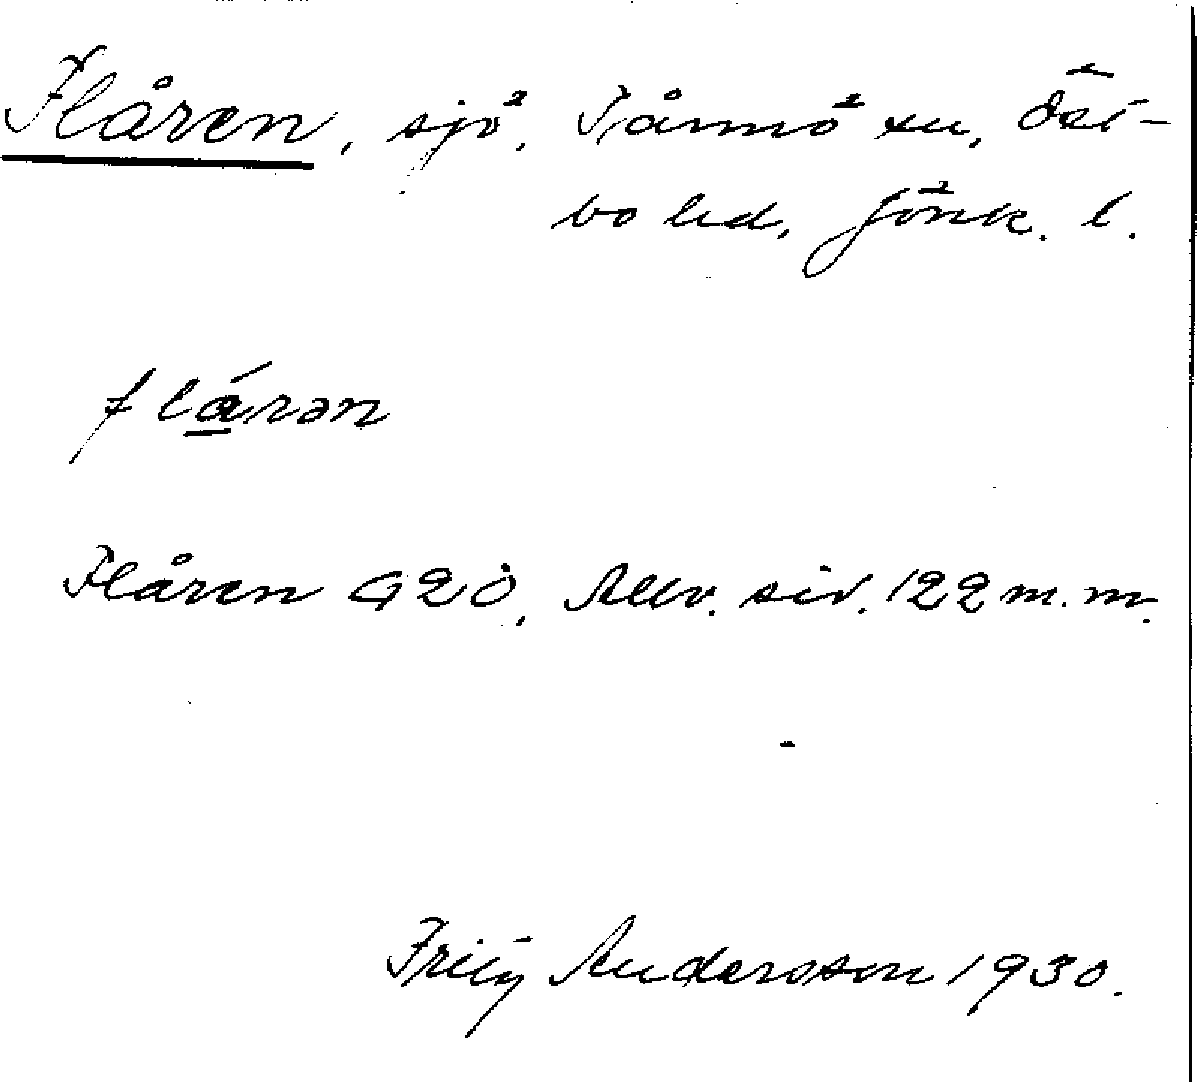 Flåren, sjö, Tånnö sn, Öst-
bo hd, Jönk. l.
flárən
Flåren G20, Allv. sid. 122 m.m.
Fritz Andersson 1930.